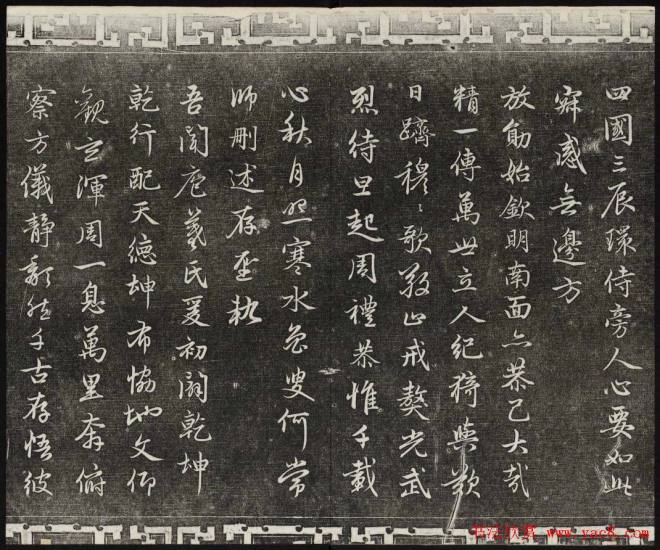 四國三辰環侍旁人心要如此
寂感無邊方
放勛始欽明南面亦恭己大哉
精一傳萬世立人紀猗與歎
日躋穆々歌敬止戒獒光武
烈待旦起周禮恭惟千載
心秋月照寒水魯叟何常
師刪述存聖軌
吾聞庖羲氏爰初闢乾坤
乾行配天德坤布協地文仰
觀玄渾周一息萬里奔俯
察方儀靜隤然千古存悟彼
书法欣赏 www.yac8.com